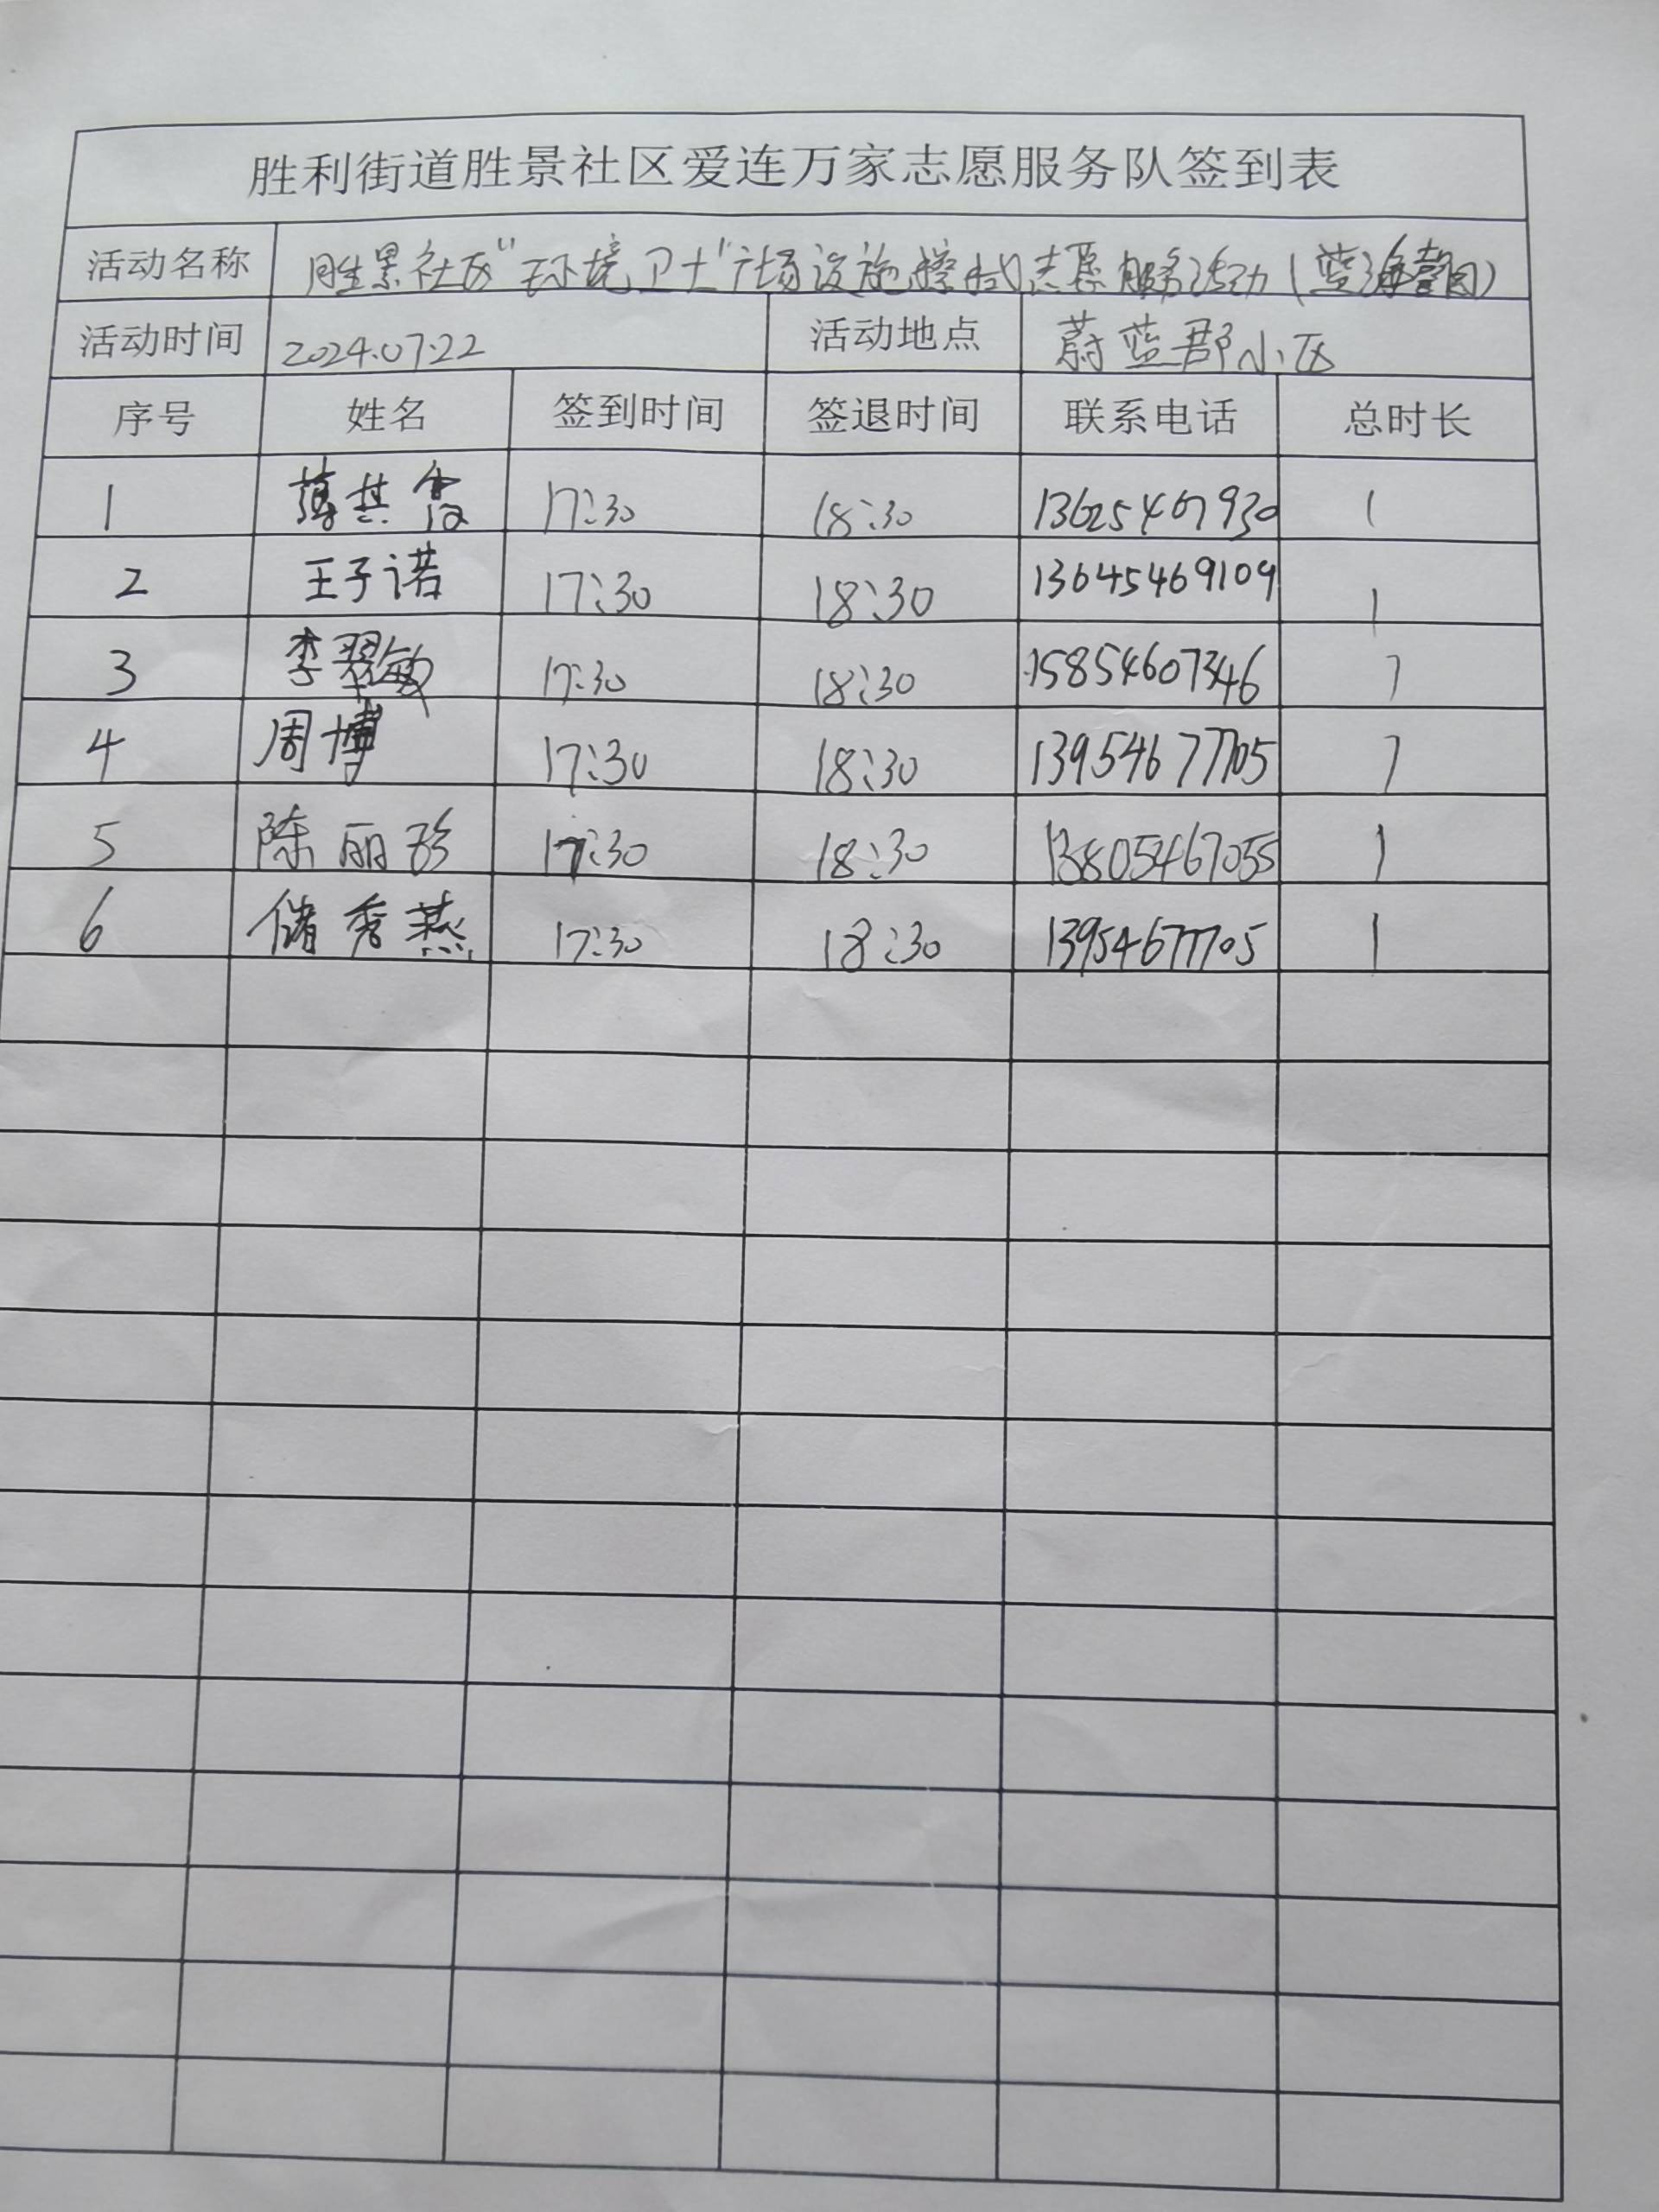 胜利街道胜景社区爱连万家志愿服务队签到表
活动名称 胜景社区"环境卫士"广场设施擦拭志愿服务活动(蓝海馨园)
活动时间 2024.07.22 活动地点 蔚蓝郡小区
序号 姓名 签到时间 签退时间 联系电话 总时长
1 17:30 18:30 13625467930 1
2 王子诺 17:30 18:30 13645469109 1
3 李翠敏 17:30 18:30 15854607346 1
4 周博 17:30 18:30 13954677705 1
5 陈丽珍 17:30 18:30 13805467055 1
6 储秀燕 17:30 18:30 13954677705 1